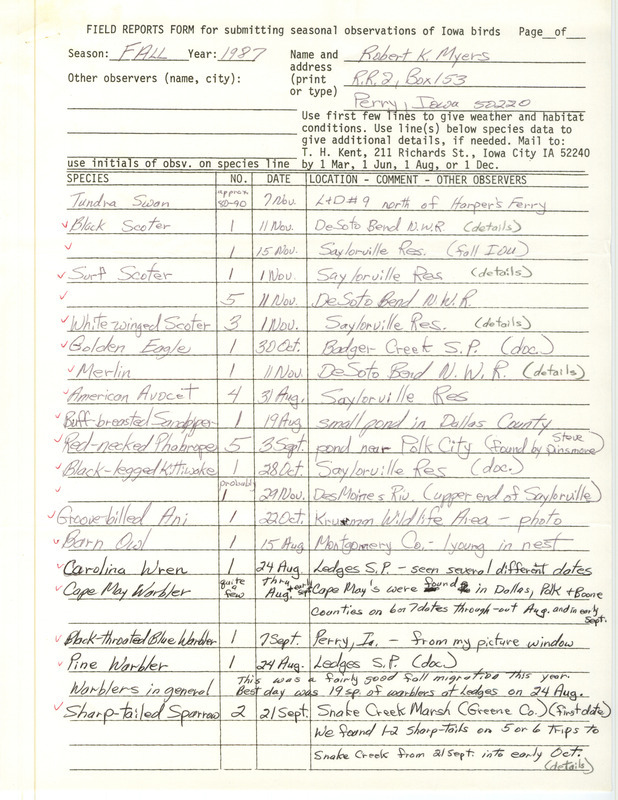 FIELD REPORTS FORM for submitting seasonal observations of Iowa birds Page__of__
Season: FALL Year: 1987 Name and address (print or type) Robert K. Myers
R.R.2, Box 153
Perry, Iowa 50220
Other observers (name, city):
Use first few lines to give weather and habitat
conditions. Use line(s) below species data to
give additional details, if needed. Mail to:
T. H. Kent, 211 Richards St., Iowa City IA 52240
by 1 Mar, 1 Jun, 1 Aug, or 1 Dec.
use initials of obsv. on species line
SPECIES NO. DATE LOCATION - COMMENT - OTHER OBSERVERS
Tundra Swan approx 80-90 7 Nov. L+D#9 north of Harper's Ferry
✓ Black Scoter 1 11 Nov. DeSoto Bend N.W.R. (details)
✓ 1 15 Nov. Saylorville Res. (fall IOU)
✓ Surf Scoter 1 1 Nov. Saylorville Res (details)
✓ 5 11 Nov. DeSoto Bend N.W.R.
✓ White-winged Scoter 3 1 Nov. Saylorville Res. (details)
✓ Golden Eagle 1 30 Oct. Badger Creek S.P. (doc.)
✓ Merlin 1 11 Nov. DeSoto Bend N.W.R. (details)
✓ American Avocet 4 31 Aug. Saylorville Res
✓ Buff-breasted Sandpiper 1 19 Aug small pond in Dallas County
✓ Red-necked Phalarope 5 3 Sept. pond near Polk City (found by Steve Dinsmore)
✓ Black-legged Kittiwake 1 28 Oct. Saylorville Res (doc.)
✓ probably 1 29 Nov. Des Moines Riv. (upper end of Saylorville)
✓ Groove-billed Ani 1 22 Oct. Wildlife Area - photo
✓ Barn Owl 1 15 Aug Montgomery Co. - 1 young in nest
✓ Carolina Wren 1 24 Aug Ledges S.P. - seen several different dates
✓ Cape May Warbler quite a few thru Aug. + early Sept Cape May's were found in Dallas, Polk + Boone
Counties on 6 or 7 dates through-out Aug. and in early Sept.
✓ Black-throated Blue Warbler 1 7 Sept. Perry, Ia. - from my picture window
✓ Pine Warbler 1 24 Aug. Ledges S.P. (doc)
Warblers in general This was a fairly good fall migration this year.
Best day was 19 sp. of warblers at Ledges on 24 Aug.
✓ Sharp-tailed Sparrow 2 21 Sept. Snake Creek Marsh (Greene Co.) (first date)
We found 1-2 Sharp-tails on 5 or 6 trips to
Snake Creek from 21 Sept. into early Oct.
(details)